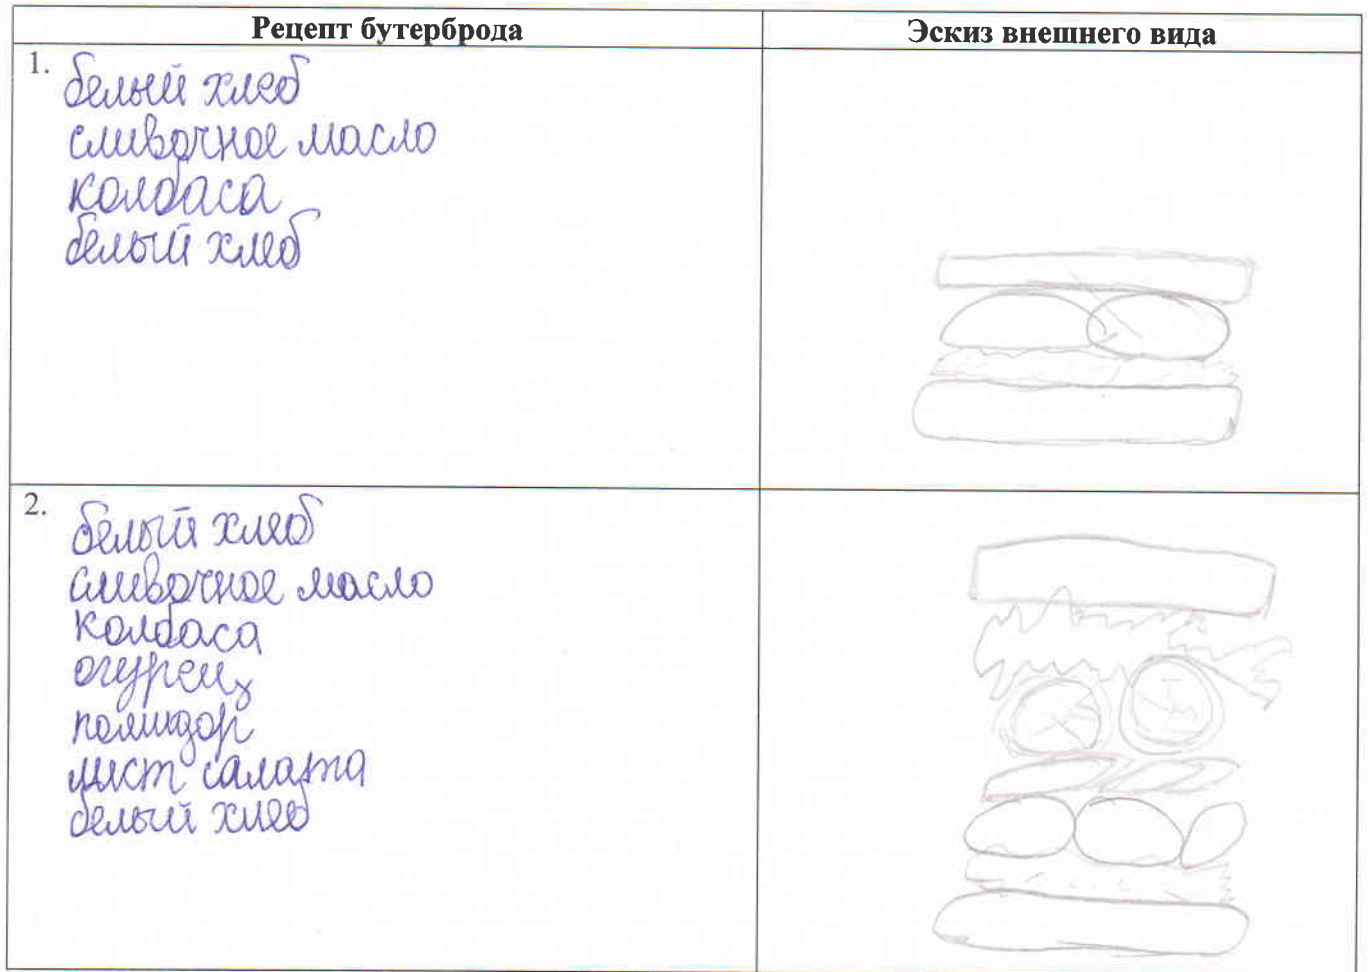 Рецепт бутерброда
Эскиз внешнего вида
1. белый хлеб
сливочное масло
колбаса
белый хлеб
2. белый хлеб
сливочное масло
колбаса
огурец
помидор
лист салата
белый хлеб